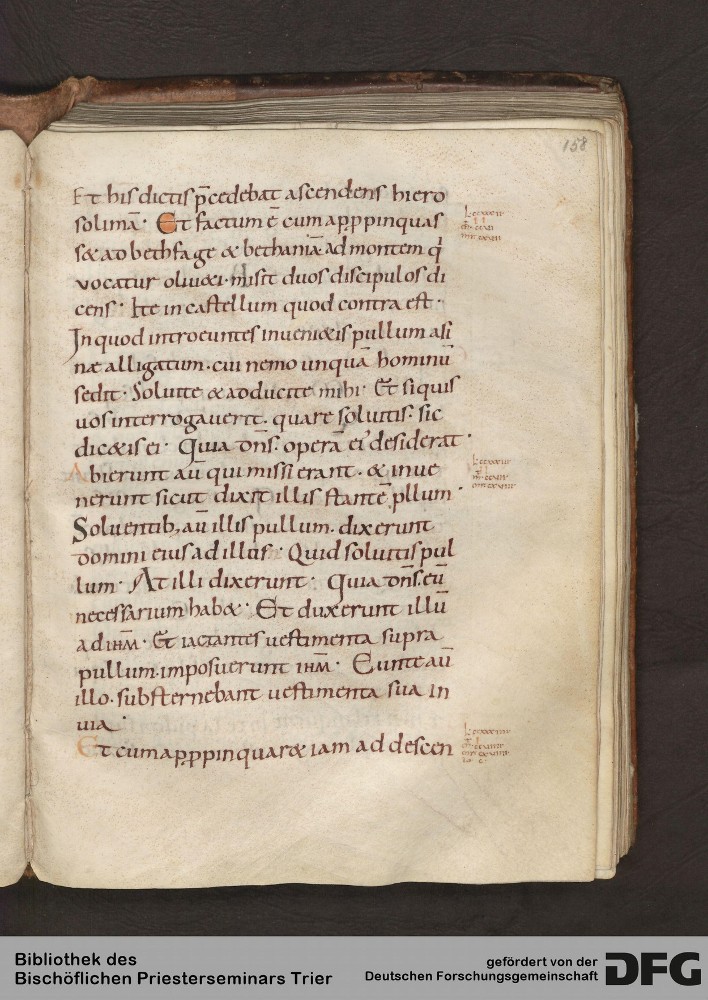 158
Et his dictis p̄cedebat ascendens hiero
solimā· Et factum ē cum appropinquas
s& ad bethfage & bethaniā ad montem q̇
vocatur oliu&i· misit duos discipulos di
cens· Ite in castellum quod contra est·
In quod introeuntes inueni&is pullum asi
næ alligatum· cui nemo unquā hominū
sedit· Soluite & adducite mihi· Et si quis
uos interrogauerit· quare soluitis· sic
dic&is ei· Quia dn̄s· operā ei' desiderat·
Abierunt aū qui missi erant· & inue
nerunt sicut dixit illis stantē pullum·
Soluentib; aū illis pullum· dixerunt
domini eius ad illos· Quid soluitis pul
lum· At illi dixerunt· Quia dn̄s· eū
necessarium hab&· Et duxerunt illū
ad ihm̄· Et iactantes uestimenta supra
pullum· imposuerunt ihm̄· Eunte aū
illo· substernebant uestimenta sua in
uia·
Et cum appropinquar& iam ad descen
Bibliothek des
Bischöflichen Priesterseminars Trier
gefördert von der
Deutschen Forschungsgemeinschaft
DFG